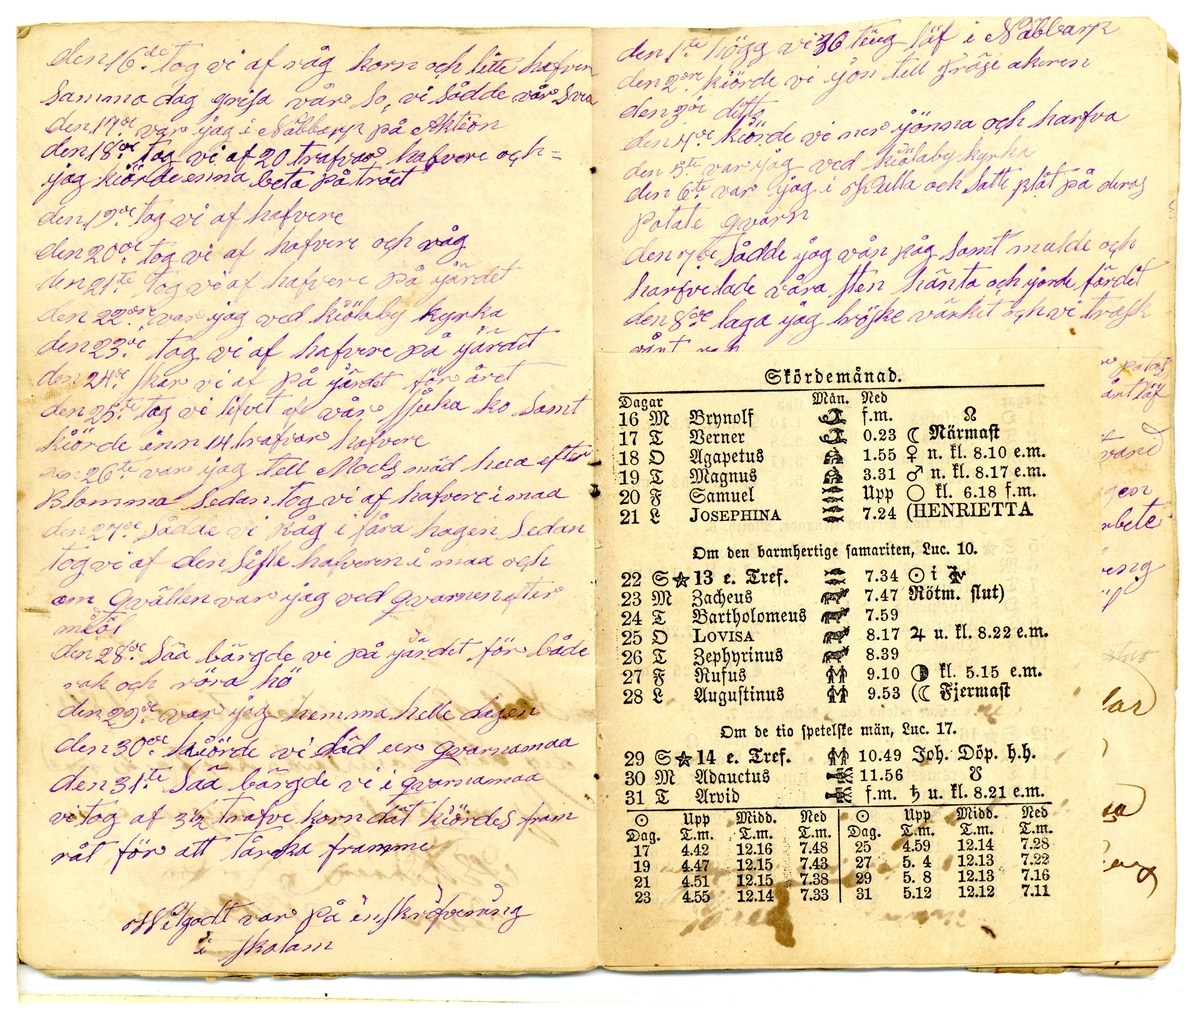 den 16de tog vi af råg korn och lite hafver
Samma dag grisa vår So, vi Sådde vår Svea
den 17de var jag i Näbberyk på Aktion
den 18de tog vi af 20 trafvar hafvere och =
jag kiörde enna beta på trät
den 19de tog vi af hafvere
den 20de tog vi af hafvere och råg
den 21te tog vi af hafvere på järdet
den 22are var jag ved kiölaby kyrka
den 23de tog vi af hafvere på järdet
den 24de Skar vi af på järdet för året
den 25te tog vi lifvet af vår Sjuka ko Samt
kiörde inn 14 trafvar hafvere
den 26te var jag tell Moels mäd hea efter
Blomma Sedan tog vi af hafvere i maa
den 27de Sådde vi Råg i fåra hagen Sedan
tog vi af den Siste hafveren i maa och
om qvällen var jag ved qvarnen efter
mjöl
den 28de Sää bärgde vi på järdet för både
rak och röra hö
den 29de var jag hemma helle dagen
den 30de kiörde vi Säd ur qvarnamaa
den 31te Sää bärgde vi i qvarnamaa
vi tog af 3½ trafve korn dät kiördes fram
råt för att tärska framme
Welgodt var på inskröfvening
i Skalam
den 1te högg vi 36 teug löf i Näbbaryk
den 2are kiörde vi jön tell Fräse akeren
den 3de ditto
den 4de kiörde vi ner jönna och harfva
den 5te var jag ved kiölaby kyrka
den 6te var jag i och Satte plåt på deras
Potate qvarn
den 7de Sådde jag vån råg Samt malde och
harfvelade våra Sten hänta och jorde färdit
den 8de laga jag tröske värket och vi trask
Skördemånad.
Dagar Mån. Ned
16 M Brynolf f.m. ☊
17 T Verner 0.23 ☾ Närmast
18 O Agapetus 1.55 ♀ n. kl. 8.10 e.m.
19 T Magnus 3.31 ♂ n. kl. 8.17 e.m.
20 F Samuel Upp ○ kl. 6.18 f.m.
21 L JOSEPHINA 7.24 (HENRIETTA
Om den barmhertige samariten, Luc. 10.
22 S ★ 13 e. Tref. 7.34 ☉ i ♍
23 M Zacheus 7.47 Rötm. slut)
24 T Bartholomeus 7.59
25 O LOVISA 8.17 ♃ u. kl. 8.22 e.m.
26 T Zephyrinus 8.39
27 F Rufus 9.10 ◑ kl. 5.15 e.m.
28 L Augustinus 9.53 (☾ Fjermast
Om de tio spetelske män, Luc. 17.
29 S ★ 14 e. Tref. 10.49 Joh. Döp. h.h.
30 M Adauctus 11.56 ☋
31 T Arvid f.m. ♄ u. kl. 8.21 e.m.
☉ Upp Midd. Ned ☉ Upp Midd. Ned
Dag. T.m. T.m. T.m. Dag. T.m. T.m. T.m.
17 4.42 12.16 7.48 25 4.59 12.14 7.28
19 4.47 12.15 7.43 27 5. 4 12.13 7.22
21 4.51 12.15 7.38 29 5. 8 12.13 7.16
23 4.55 12.14 7.33 31 5.12 12.12 7.11